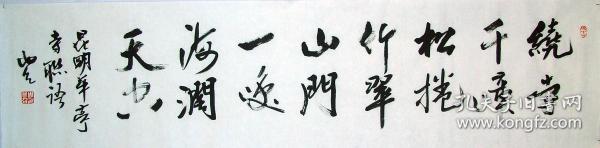 繞寺
千章
松
竹翠
出門
一咲
海濶
天空
昆明華亭
寺聯語
孔夫子旧书网
www.kongfz.com